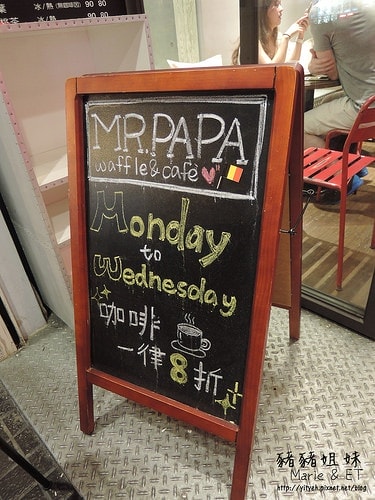 冰/熱(無咖啡因) 90 80
冰/熱 90 80
MR.PAPA
waffle & café
Monday
to
Wednesday
咖啡
一律8折
豬豬姐妹
Marie & ET
http://yityeh.pixnet.net/blog